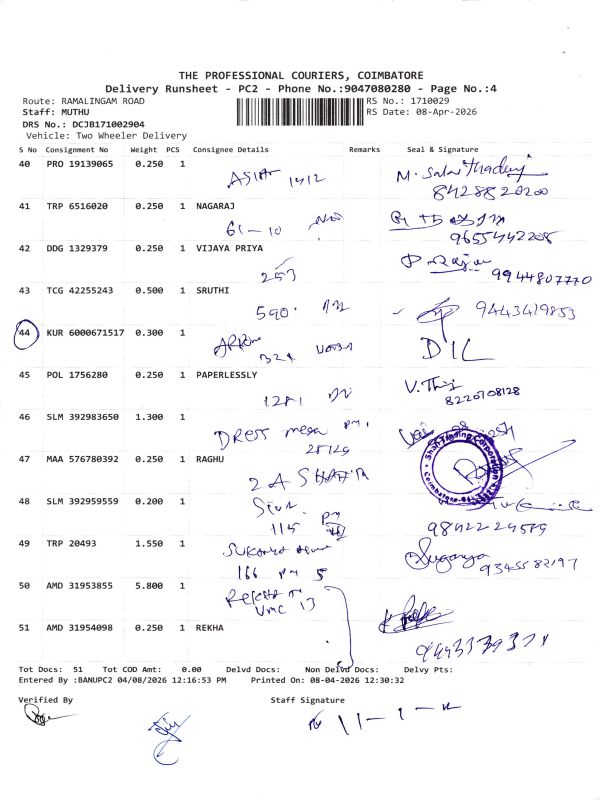 THE PROFESSIONAL COURIERS, COIMBATORE
Delivery Runsheet - PC2 - Phone No.:9047080280 - Page No.:4
Route: RAMALINGAM ROAD RS No.: 1710029
Staff: MUTHU RS Date: 08-Apr-2026
DRS No.: DCJB171002904
Vehicle: Two Wheeler Delivery
S No Consignment No Weight PCS Consignee Details Remarks Seal & Signature
40 PRO 19139065 0.250 1
8428820200
41 TRP 6516020 0.250 1 NAGARAJ
61-10
9655442208
42 DDG 1329379 0.250 1 VIJAYA PRIYA
253
9944807770
43 TCG 42255243 0.500 1 SRUTHI
590
9443419853
44 KUR 6000671517 0.300 1
DIL
45 POL 1756280 0.250 1 PAPERLESSLY
1281
8220708128
46 SLM 392983650 1.300 1
DRESS
47 MAA 576780392 0.250 1 RAGHU
Shah Trading Corporation
Coimbatore
48 SLM 392959559 0.200 1
115
49 TRP 20493 1.550 1
166 PM 5
Suganya
9345582197
50 AMD 31953855 5.800 1
VMC 13
51 AMD 31954098 0.250 1 REKHA
Tot Docs: 51 Tot COD Amt: 0.00 Delvd Docs: Non Delvd Docs: Delvy Pts:
Entered By :BANUPC2 04/08/2026 12:16:53 PM Printed On: 08-04-2026 12:30:32
Verified By Staff Signature